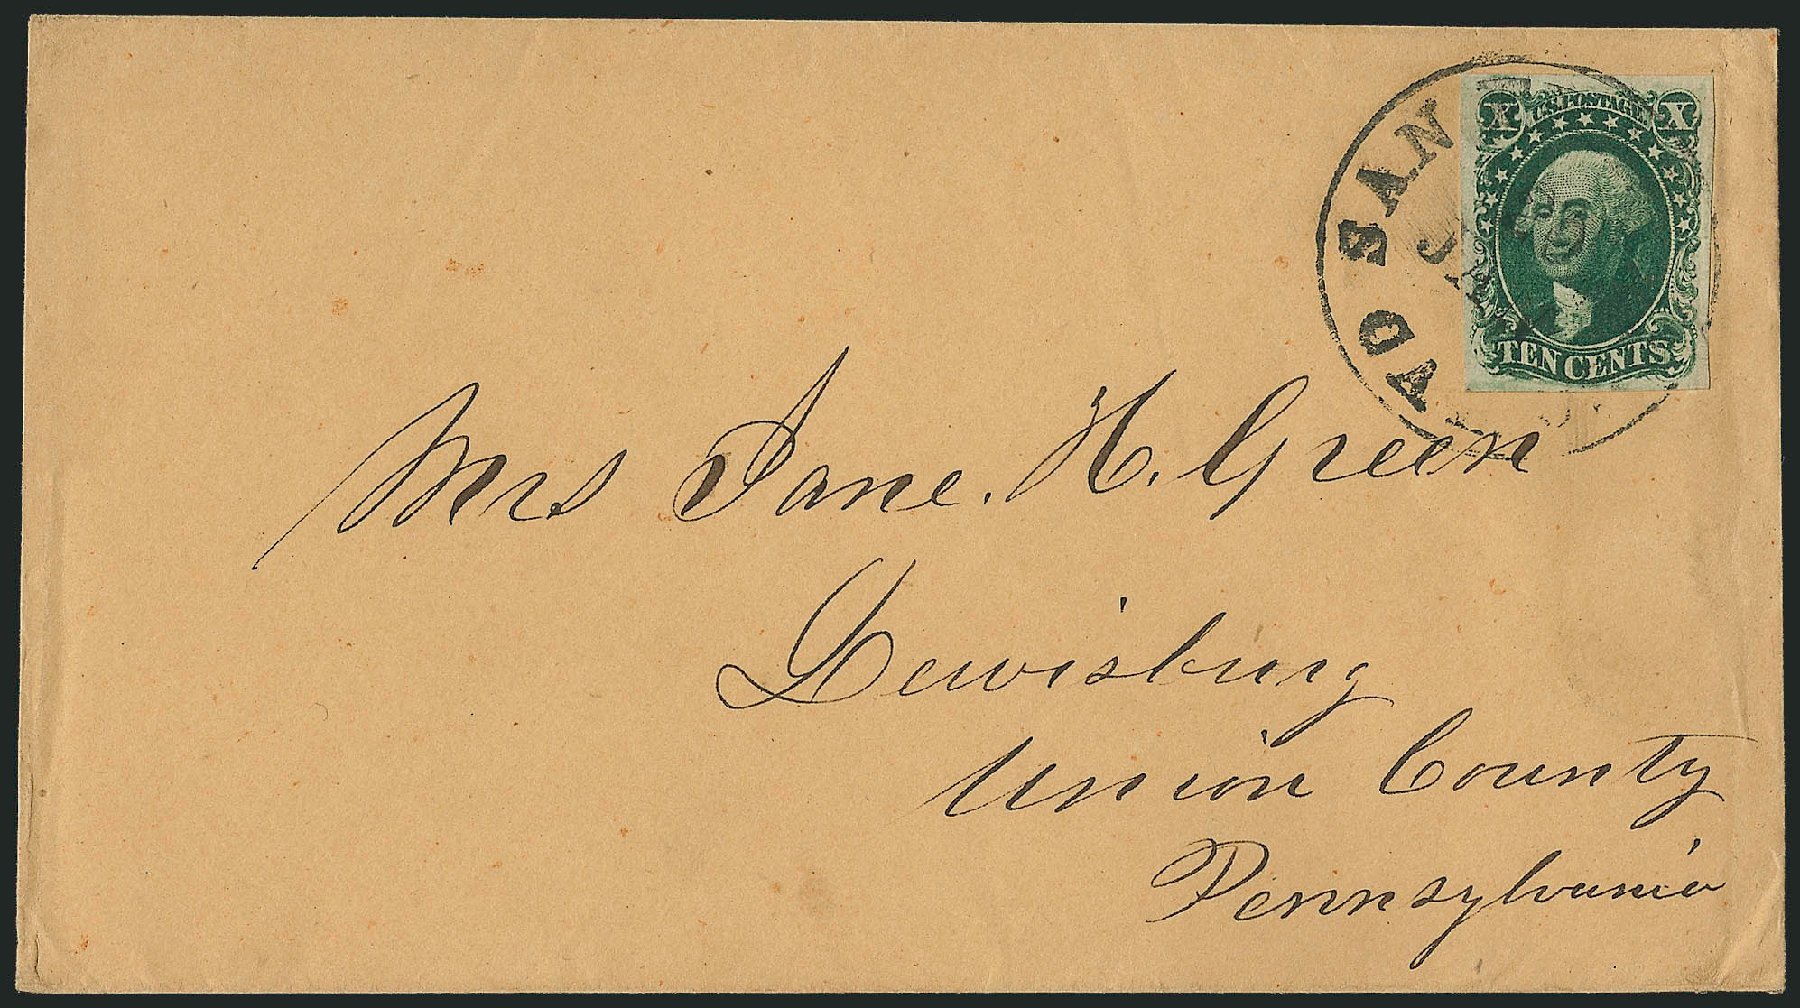 X U.S. POSTAGE X
TEN CENTS
SAN
JAN
Mrs Jane. H. Green
Lewisburg
Union County
Pennsylvania